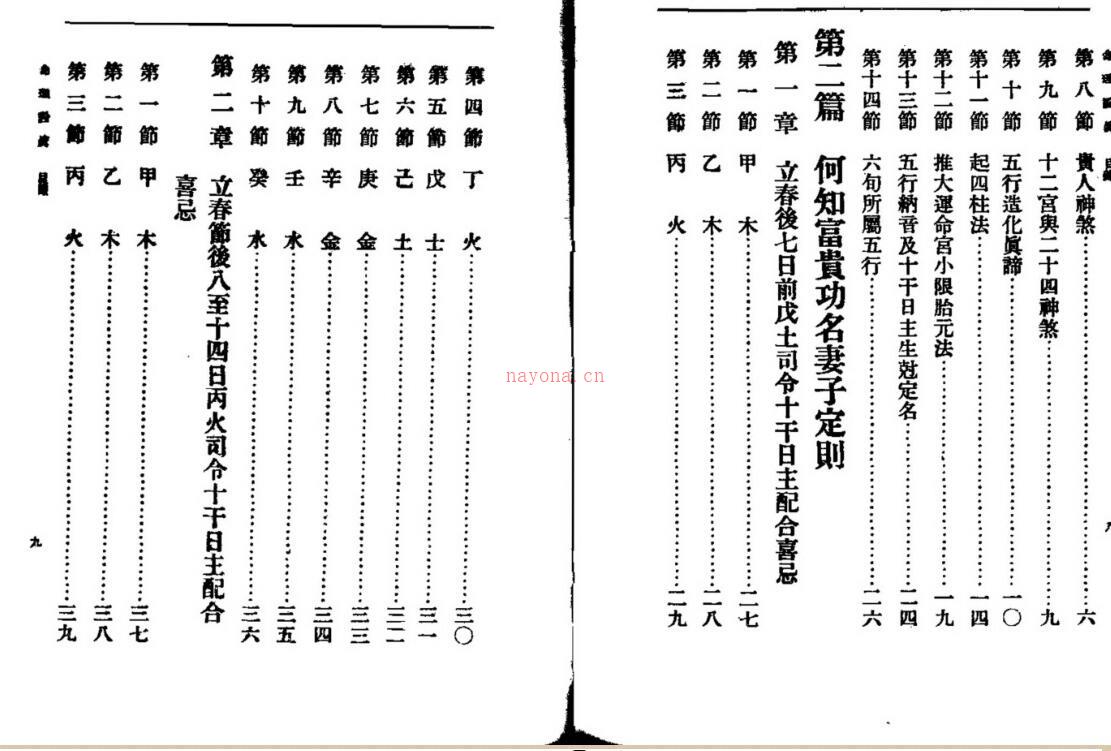 第八節 貴人神煞……六
第九節 十二宮與二十四神煞……九
第十節 五行造化眞諦……一〇
第十一節 起四柱法……一四
第十二節 推大運命宮小限胎元法……一九
第十三節 五行納音及十干日主生尅定名……二四
第十四節 六旬所屬五行……二六
第二篇 何知富貴功名妻子定則
第一章 立春後七日前戊土司令十干日主配合喜忌
第一節 甲木……二七
第二節 乙木……二八
第三節 丙火……二九
第四節 丁火……三〇
第五節 戊土……三一
第六節 己土……三二
第七節 庚金……三三
第八節 辛金……三四
第九節 壬水……三五
第十節 癸水……三六
第二章 立春節後八至十四日丙火司令十干日主配合
喜忌
第一節 甲木……三七
第二節 乙木……三八
第三節 丙火……三九
目錄
九
nayona.cn